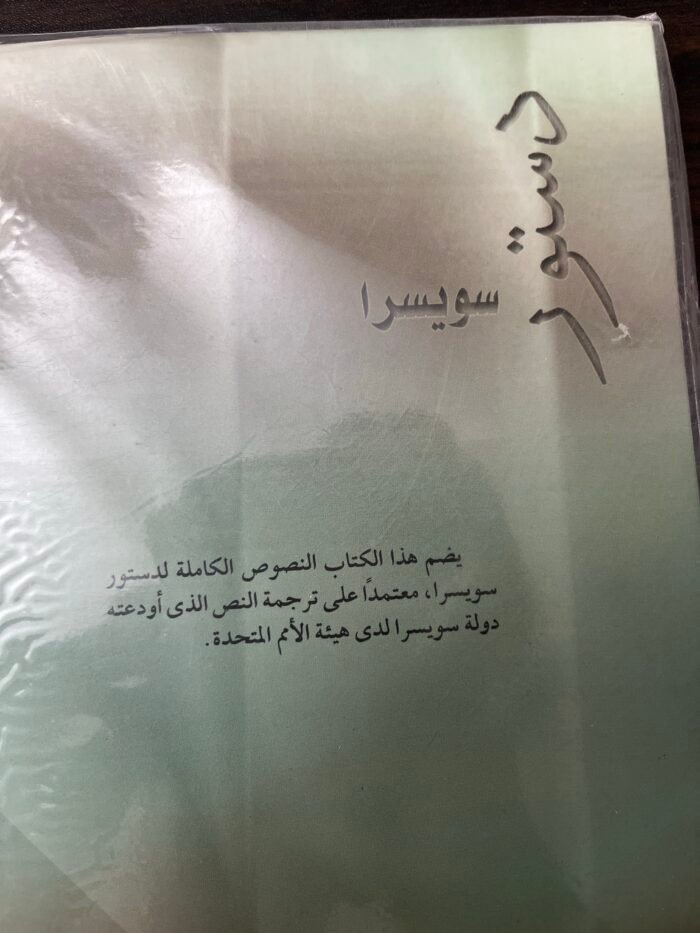 دستور
سويسرا
يضم هذا الكتاب النصوص الكاملة لدستور
سويسرا، معتمدًا على ترجمة النص الذى أودعته
دولة سويسرا لدى هيئة الأمم المتحدة.